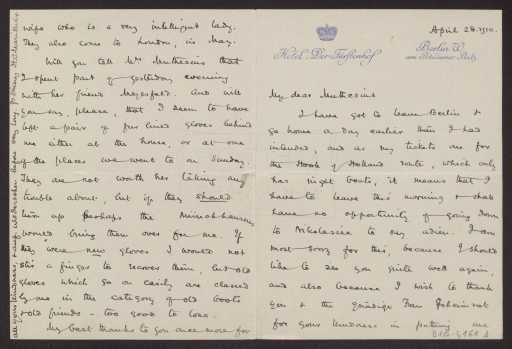 April 28. 1910.
Hotel Der Fürstenhof
Berlin W.
am Potsdamer Platz
My dear Muthesius
I have got to leave Berlin &
go home a day earlier than I had
intended, and as my tickets are for
the Hook of Holland route, which only
has night boats, it means that I
have to leave this morning & shall
have no opportunity of going down
to Nikolassee to say adieu. I am
most sorry for this, because I should
like to see you quite well again,
and also because I wish to thank
you & the gnädige Frau Geheimrat
for your kindness in putting me
wife who is a very intelligent lady.
They also come to London, in May.
Will you tell Mrs Muthesius that
I spent part of yesterday evening
with her friend And will
you say, please, that I seem to have
left a pair of fur lined gloves behind
me either at the house, or at one
of the places we went to on Sunday.
They are not worth her taking any
trouble about, but if they should
turn up perhaps the
would bring them over for me. If
they were new gloves I would not
stir a finger to recover them, but old
gloves which go on easily are classed
by me in the category of old boots
& old friends – too good to lose.
My best thanks to you once more for
all your kindness, & auf Wiedersehen before very long